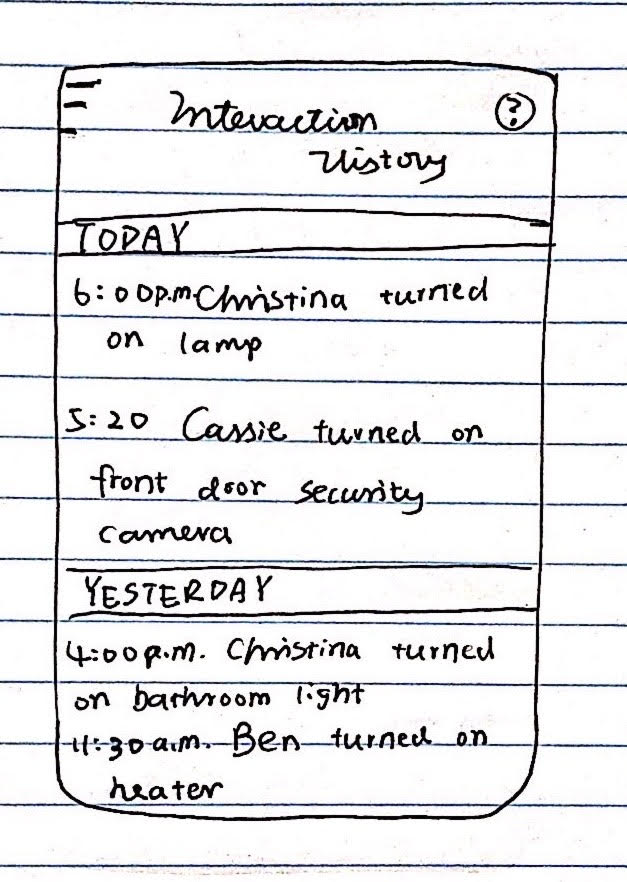 Interaction
History
?
TODAY
6:00p.m Christina turned
on lamp
5:20 Cassie turned on
front door security
camera
YESTERDAY
4:00p.m. Christina turned
on bathroom light
11:30a.m. Ben turned on
heater